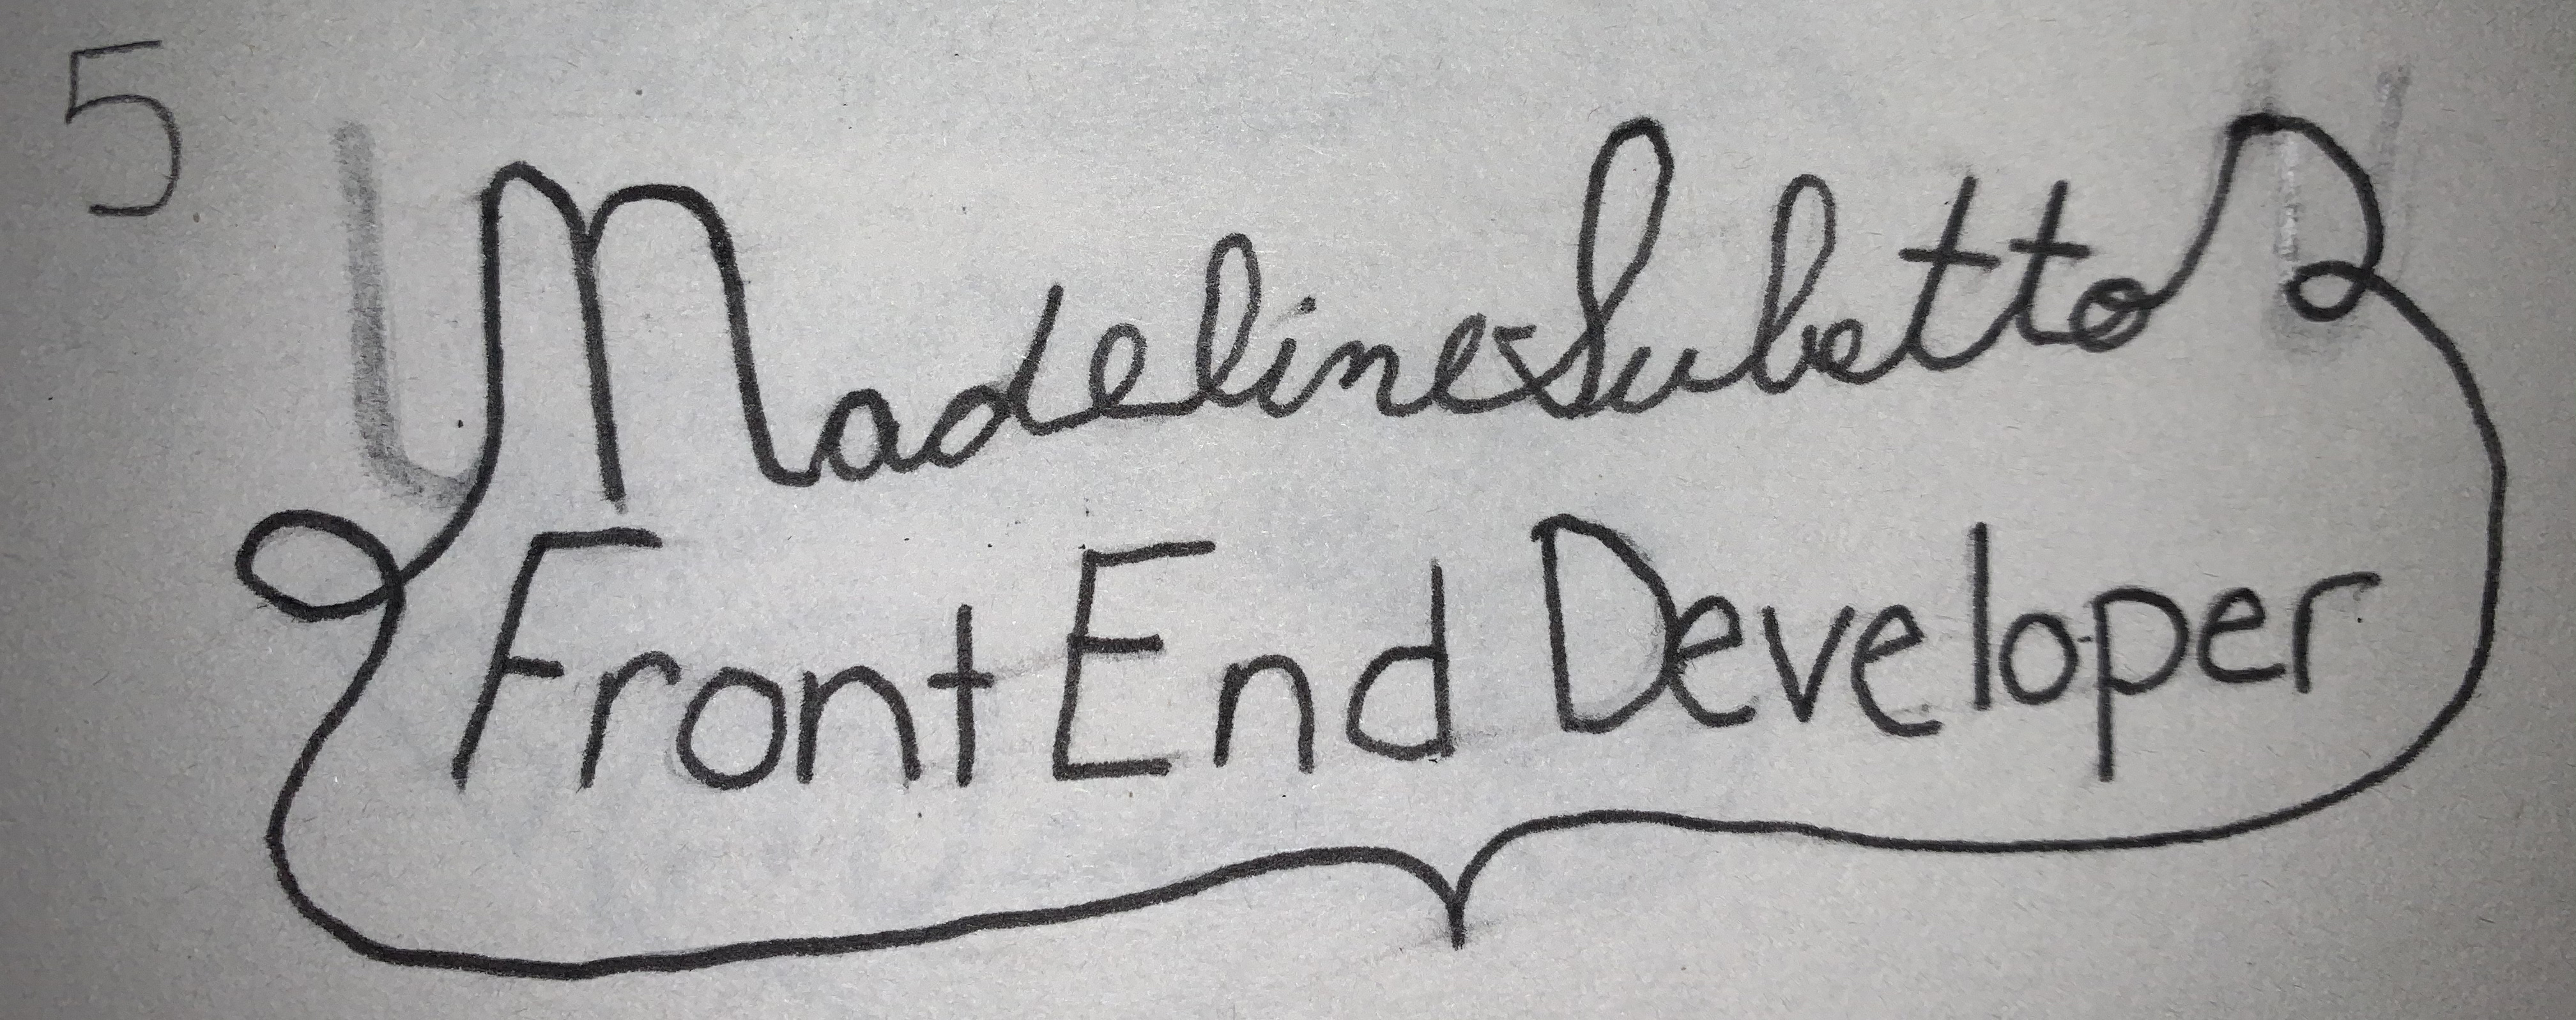 5
Madeline Subetto
Front End Developer